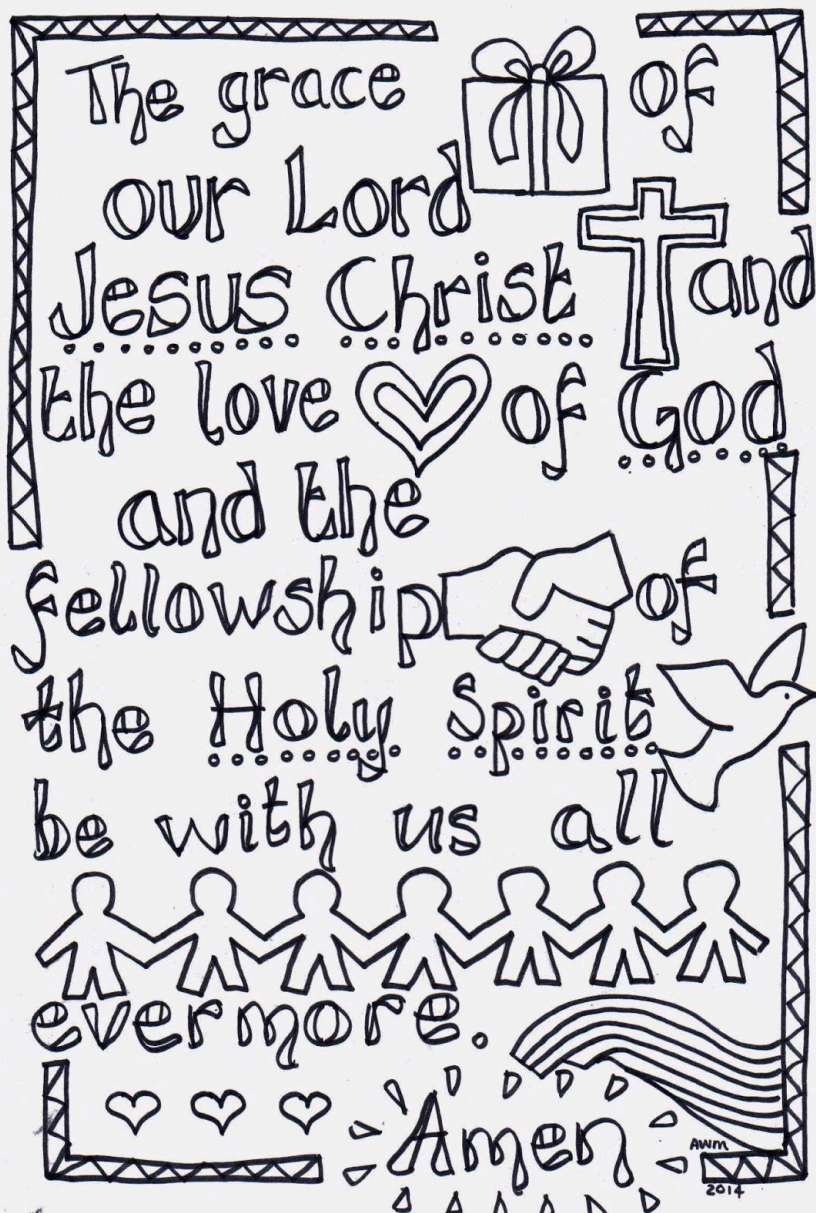 The grace of
our Lord
Jesus Christ and
the love of God
and the
fellowship of
the Holy Spirit
be with us all
evermore.
Amen
AWM
2014